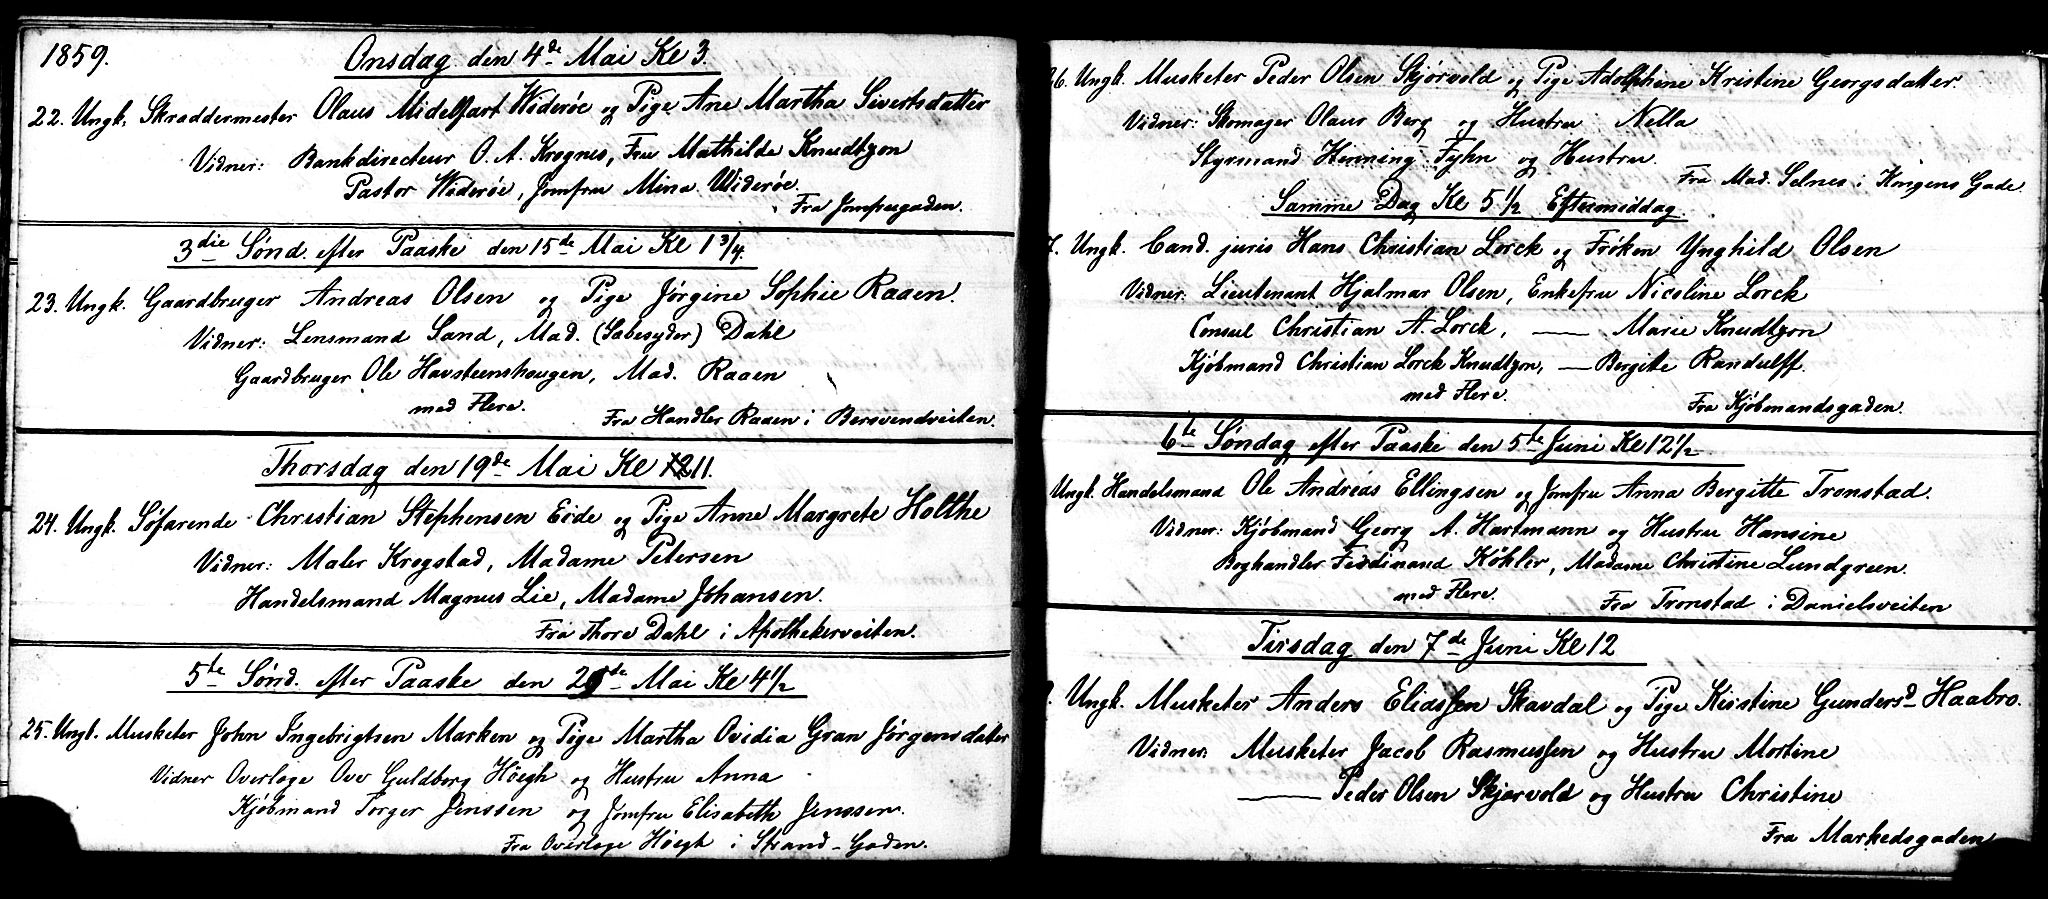 1859.
Onsdag den 4de Mai Kl 3.
22. Ungk. Skræddermester Olaus Midelfart Widerøe og Pige Ane Martha Sivertsdatter
Vidner: Bankdirecteur O. A. Krognes, Fru Mathilde Knudtzon
Pastor Widerøe, Jomfru Mina Widerøe.
Fra Jomfrugaden.
3die Sønd. efter Paaske den 15de Mai Kl 1 3/4.
23. Ungk. Gaardbruger Andreas Olsen og Pige Jørgine Sophie Raaen.
Vidner: Lensmand Sand, Mad. (Sæbesyder) Dahl
Gaardbruger Ole Havsteenshougen, Mad. Raaen
med Flere.
Fra Handler Raaen i Bersvendveiten.
Thorsdag den 19de Mai Kl 11.
24. Ungk. Søfarende Christian Stephensen Eide og Pige Anne Margrete Holthe
Vidner: Maler Krogstad, Madame Petersen
Handelsmand Magnus Lie, Madame Johansen.
Fra Thore Dahl i Apothekerveiten.
5te Sønd. efter Paaske den de Mai Kl 4 1/2
25. Ungk. Musketer John Ingebrigtsen Marken og Pige Martha Ovidia Gran Jørgensdatter
Vidner Overlæge Ove Guldberg Høegh og Hustru Anna
Kjøbmand Torger Jenssen og Jomfru Elisabeth Jenssen.
Fra Overlæge Høegh i Strand-Gaden.
26. Ungk. Musketer Peder Olsen Skjørvold og Pige Adolphine Kristine Georgsdatter.
Vidner: Skomager Olaus Berg og Hustru Nella
Styrmand Henning Fyhn og Hustru.
Fra Mad. Selnes i Kongens Gade.
Samme Dag Kl 5 1/2 Eftermiddag.
7. Ungk. Cand. juris Hans Christian Lorck og Frøken Ynghild Olsen
Vidner: Lieutenant Hjalmar Olsen, Enkefru Nicoline Lorck
Consul Christian A. Lorck, — Marie Knudtzon
Kjøbmand Christian Lorck Knudtzon, — Bergitte Randulff.
med Flere.
Fra Kjøbmandsgaden.
6te Søndag efter Paaske den 5te Juni Kl 12 1/2
Ungk. Handelsmand Ole Andreas Ellingsen og Jomfru Anna Bergitte Tronstad.
Vidner: Kjøbmand Georg A. Hartmann og Hustru Hansine
Boghandler Ferdinand Køhler, Madame Christine Lundgreen.
med Flere.
Fra Tronstad i Danielsveiten
Tirsdag den 7de Juni Kl 12
Ungk. Musketer Anders Eliassen Skavdal og Pige Kirstine Gundersd Haabro.
Vidner: Musketer Jacob Rasmussen og Hustru Mortine
— Peder Olsen Skjørvold og Hustru Christine
Fra Markedsgaden